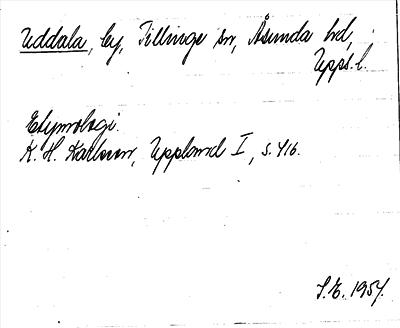 Uddala, by, Tillinge sn, Åsunda hd,
Upps. l.
Etymologi.
K. H. Karlsson, Uppland I, s. 416.
S.E. 1957.